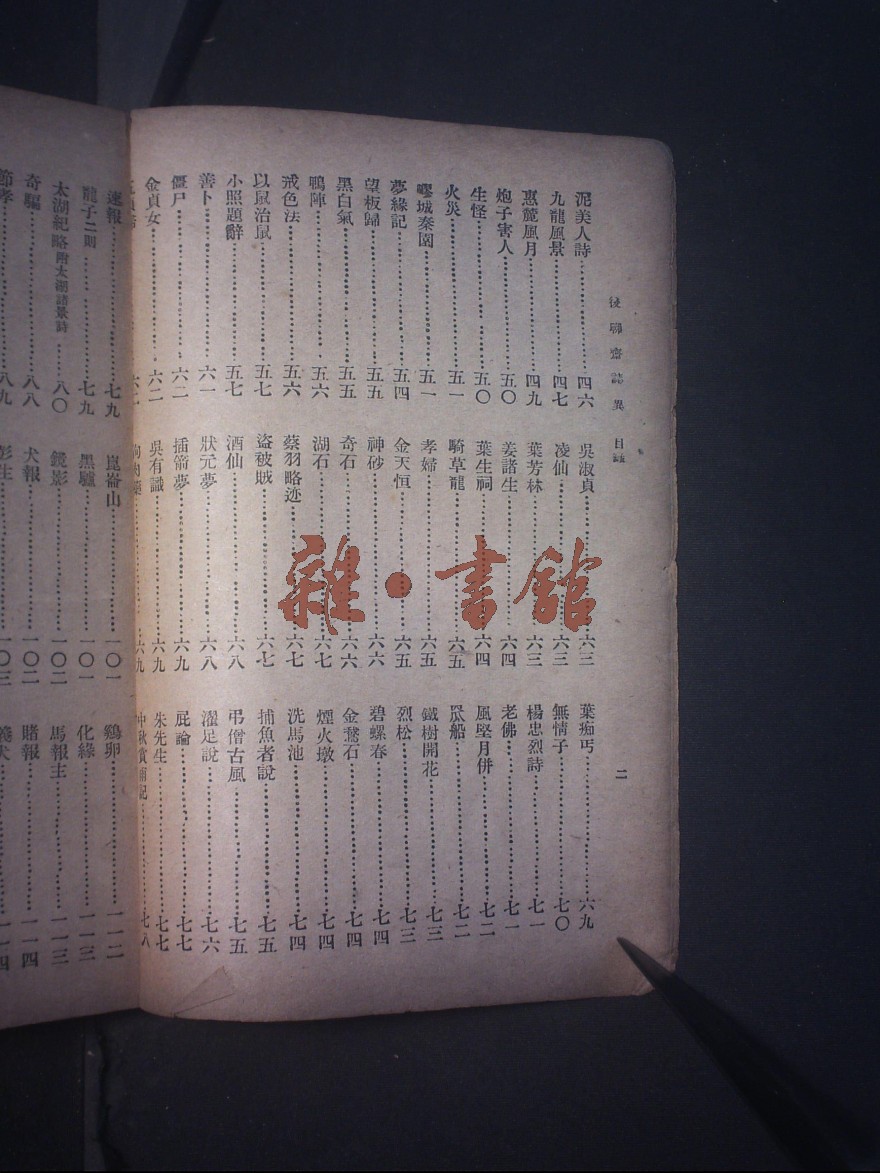 後聊齋誌異 目錄
二
泥美人詩 四六
九龍風景 四七
惠麓風月 四九
炮子害人 五〇
生怪 五〇
火災 五一
蓉城秦園 五一
夢緣記 五四
望板歸 五五
黑白氣 五五
鴨陣 五六
戒色法 五六
以鼠治鼠 五七
小照題辭 五七
善卜 六一
僵尸 六二
金貞女 六二
吳淑貞 六三
凌仙 六三
葉芳林 六三
姜諸生 六四
葉生祠 六四
騎草龍 六五
孝婦 六五
金天恒 六五
神砂 六六
奇石 六六
湖石 六七
蔡羽略迹 六七
盜被賊 六七
酒仙 六八
狀元夢 六八
插箭夢 六九
吳有識 六九
六九
葉痴丐 六九
無情子 七〇
楊忠烈詩 七一
老佛 七一
風堅月併 七二
船 七二
鐵樹開花 七三
烈松 七三
碧螺春 七四
金鰲石 七四
煙火墩 七四
洗馬池 七四
捕魚者說 七五
弔僧古風 七五
濯足說 七六
屁論 七七
朱先生 七七
中秋賞月記 七八
速報 七九
龍子二則 七九
太湖紀略附太湖諸景詩 八〇
奇騙 八八
節孝 八九
崑崙山 一〇一
黑驢 一〇一
鏡影 一〇二
犬報 一〇二
彭生 一〇三
鷄卵 一一二
化緣 一一三
馬報主 一一三
賭報 一一四
義犬 一一四
雜·書館